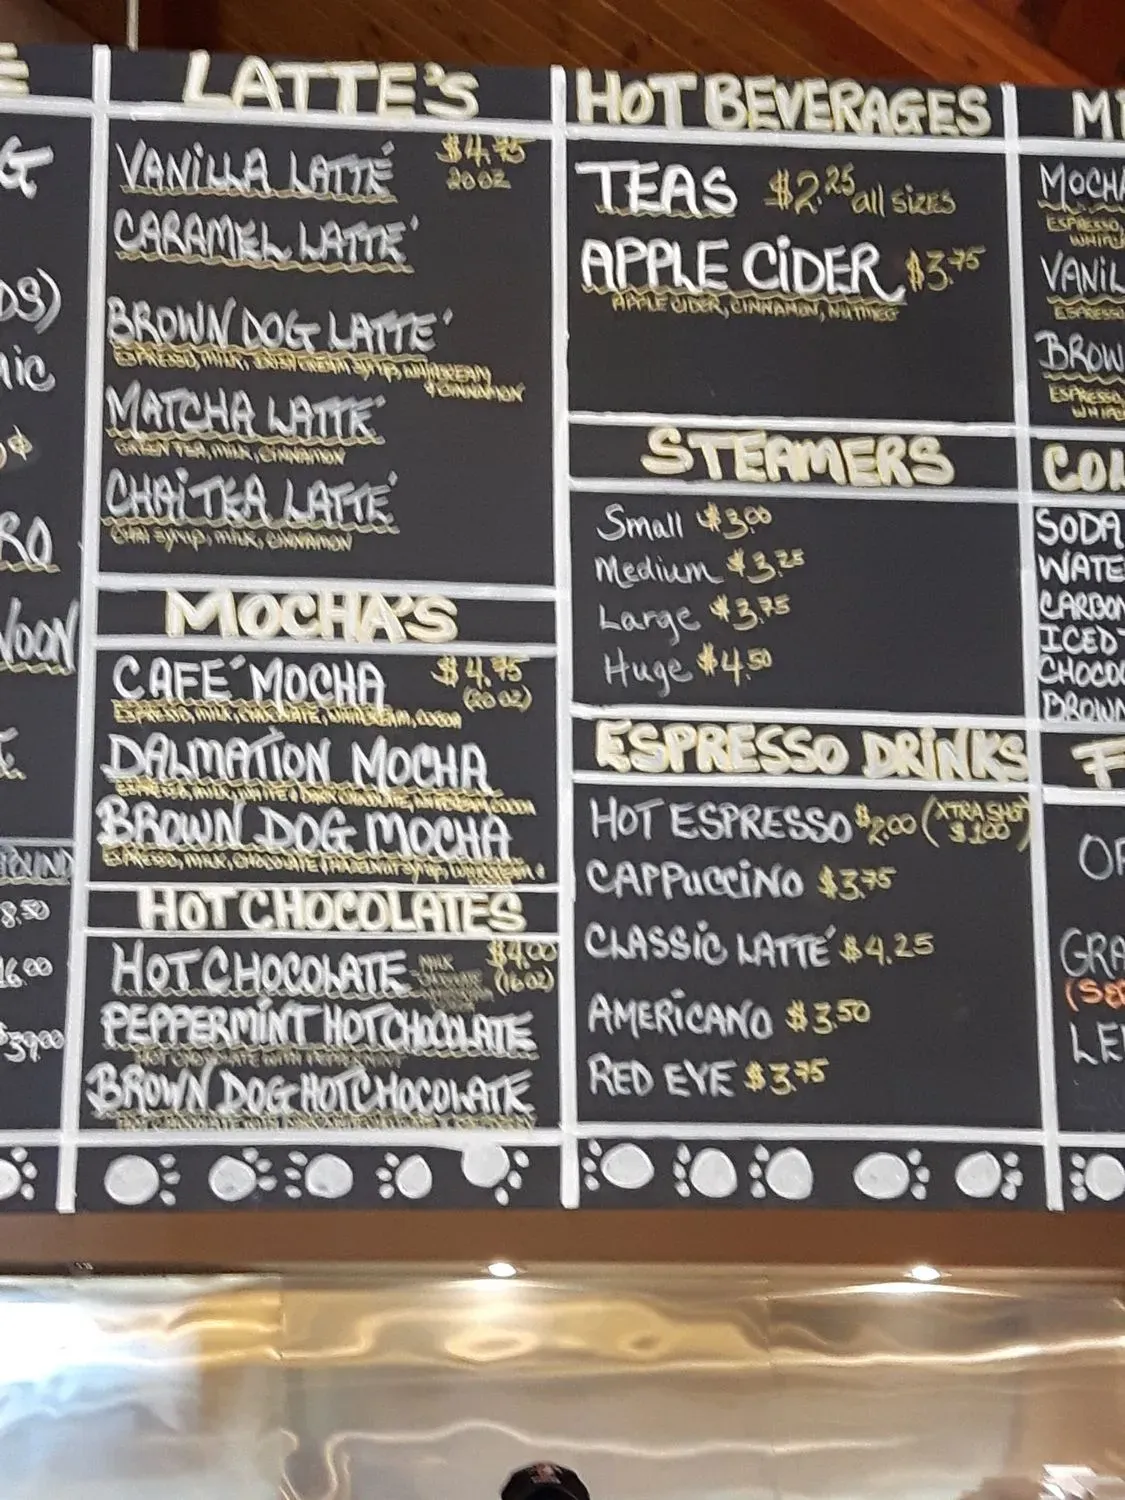 LATTE'S
VANILLA LATTÉ $4.75
20 OZ
CARAMEL LATTÉ
BROWN DOG LATTÉ
ESPRESSO, MILK, IRISH CREAM SYRUP, WHIPCREAM
& CINNAMON
MATCHA LATTÉ
GREEN TEA, MILK, CINNAMON
CHAI TEA LATTÉ
CHAI SYRUP, MILK, CINNAMON
MOCHA'S
CAFÉ MOCHA $4.75
(20 OZ)
ESPRESSO, MILK, CHOCOLATE, WHIPCREAM, COCOA
DALMATION MOCHA
ESPRESSO, MILK, WHITE & DARK CHOCOLATE, WHIPCREAM, COCOA
BROWN DOG MOCHA
ESPRESSO, MILK, CHOCOLATE, HAZELNUT SYRUP, WHIPCREAM &
HOT CHOCOLATES
HOT CHOCOLATE $4.00
MILK
(16 OZ)
PEPPERMINT HOT CHOCOLATE
HOT CHOCOLATE WITH PEPPERMINT
BROWN DOG HOT CHOCOLATE
HOT CHOCOLATE WITH
HOT BEVERAGES
TEAS $2.25 all sizes
APPLE CIDER $3.75
APPLE CIDER, CINNAMON, NUTMEG
STEAMERS
Small $3.00
Medium $3.25
Large $3.75
Huge $4.50
ESPRESSO DRINKS
HOT ESPRESSO $2.00 (XTRA SHOT
$1.00)
CAPPUCCINO $3.75
CLASSIC LATTÉ $4.25
AMERICANO $3.50
RED EYE $3.75
MOCHA
ESPRESSO,
WHIPC
VANIL
ESPRESSO
BROW
ESPRESSO,
WHIPC
SODA
WATE
CARBON
ICED T
CHOCO
BROWN
GRA
LE
E
G
DS)
IC
¢
RO
NOON
POUND
8.50
16.00
$39.00